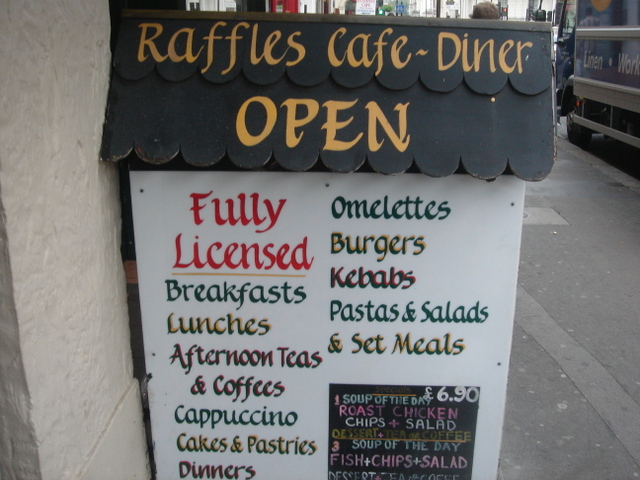 Raffles Cafe-Diner
OPEN
Fully
Licensed
Breakfasts
Lunches
Afternoon Teas
& Coffees
Cappuccino
Cakes & Pastries
Dinners
Omelettes
Burgers
Kebabs
Pastas & Salads
& Set Meals
£6.90
1 SOUP OF THE DAY
ROAST CHICKEN
CHIPS + SALAD
DESSERT + TEA or COFFEE
3 SOUP OF THE DAY
FISH+CHIPS+SALAD
DESSERT + TEA or COFFEE
Linen World